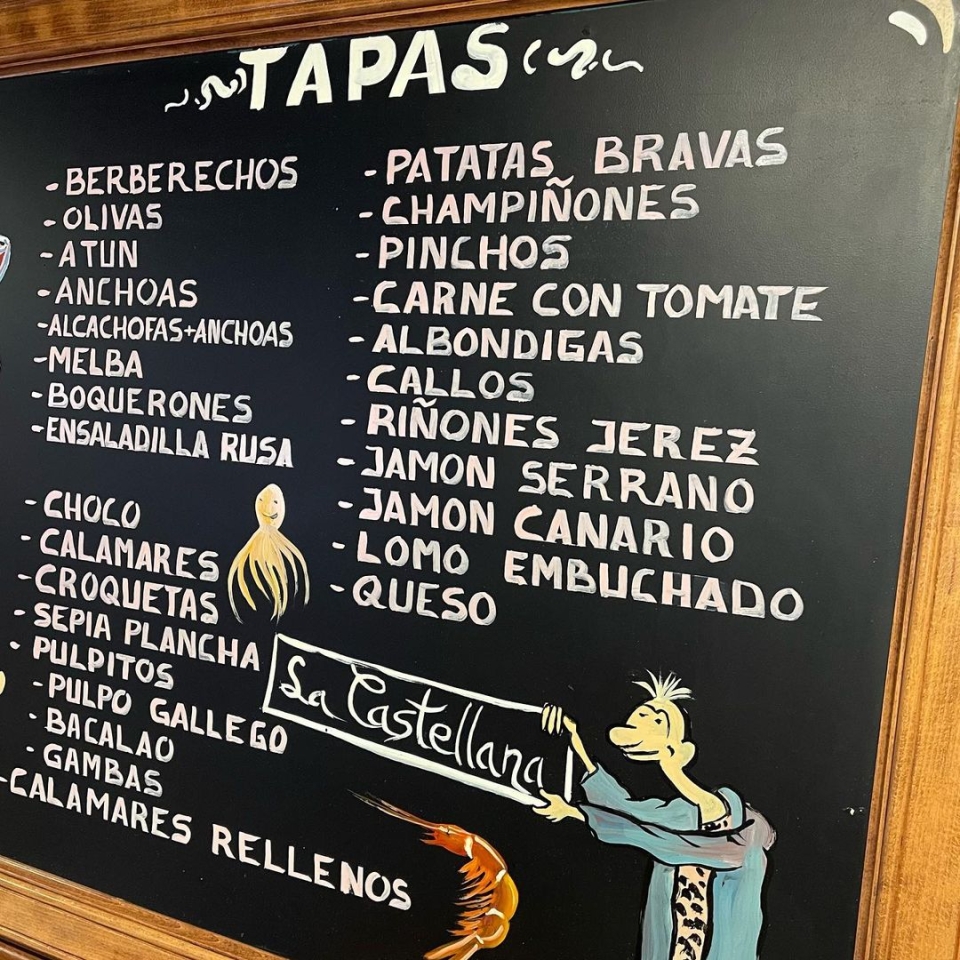 TAPAS
- BERBERECHOS
- OLIVAS
- ATUN
- ANCHOAS
- ALCACHOFAS+ANCHOAS
- MELBA
- BOQUERONES
- ENSALADILLA RUSA
- CHOCO
- CALAMARES
- CROQUETAS
- SEPIA PLANCHA
- PULPITOS
- PULPO GALLEGO
- BACALAO
- GAMBAS
- CALAMARES RELLENOS
- PATATAS BRAVAS
- CHAMPIÑONES
- PINCHOS
- CARNE CON TOMATE
- ALBONDIGAS
- CALLOS
- RIÑONES JEREZ
- JAMON SERRANO
- JAMON CANARIO
- LOMO EMBUCHADO
- QUESO
La Castellana